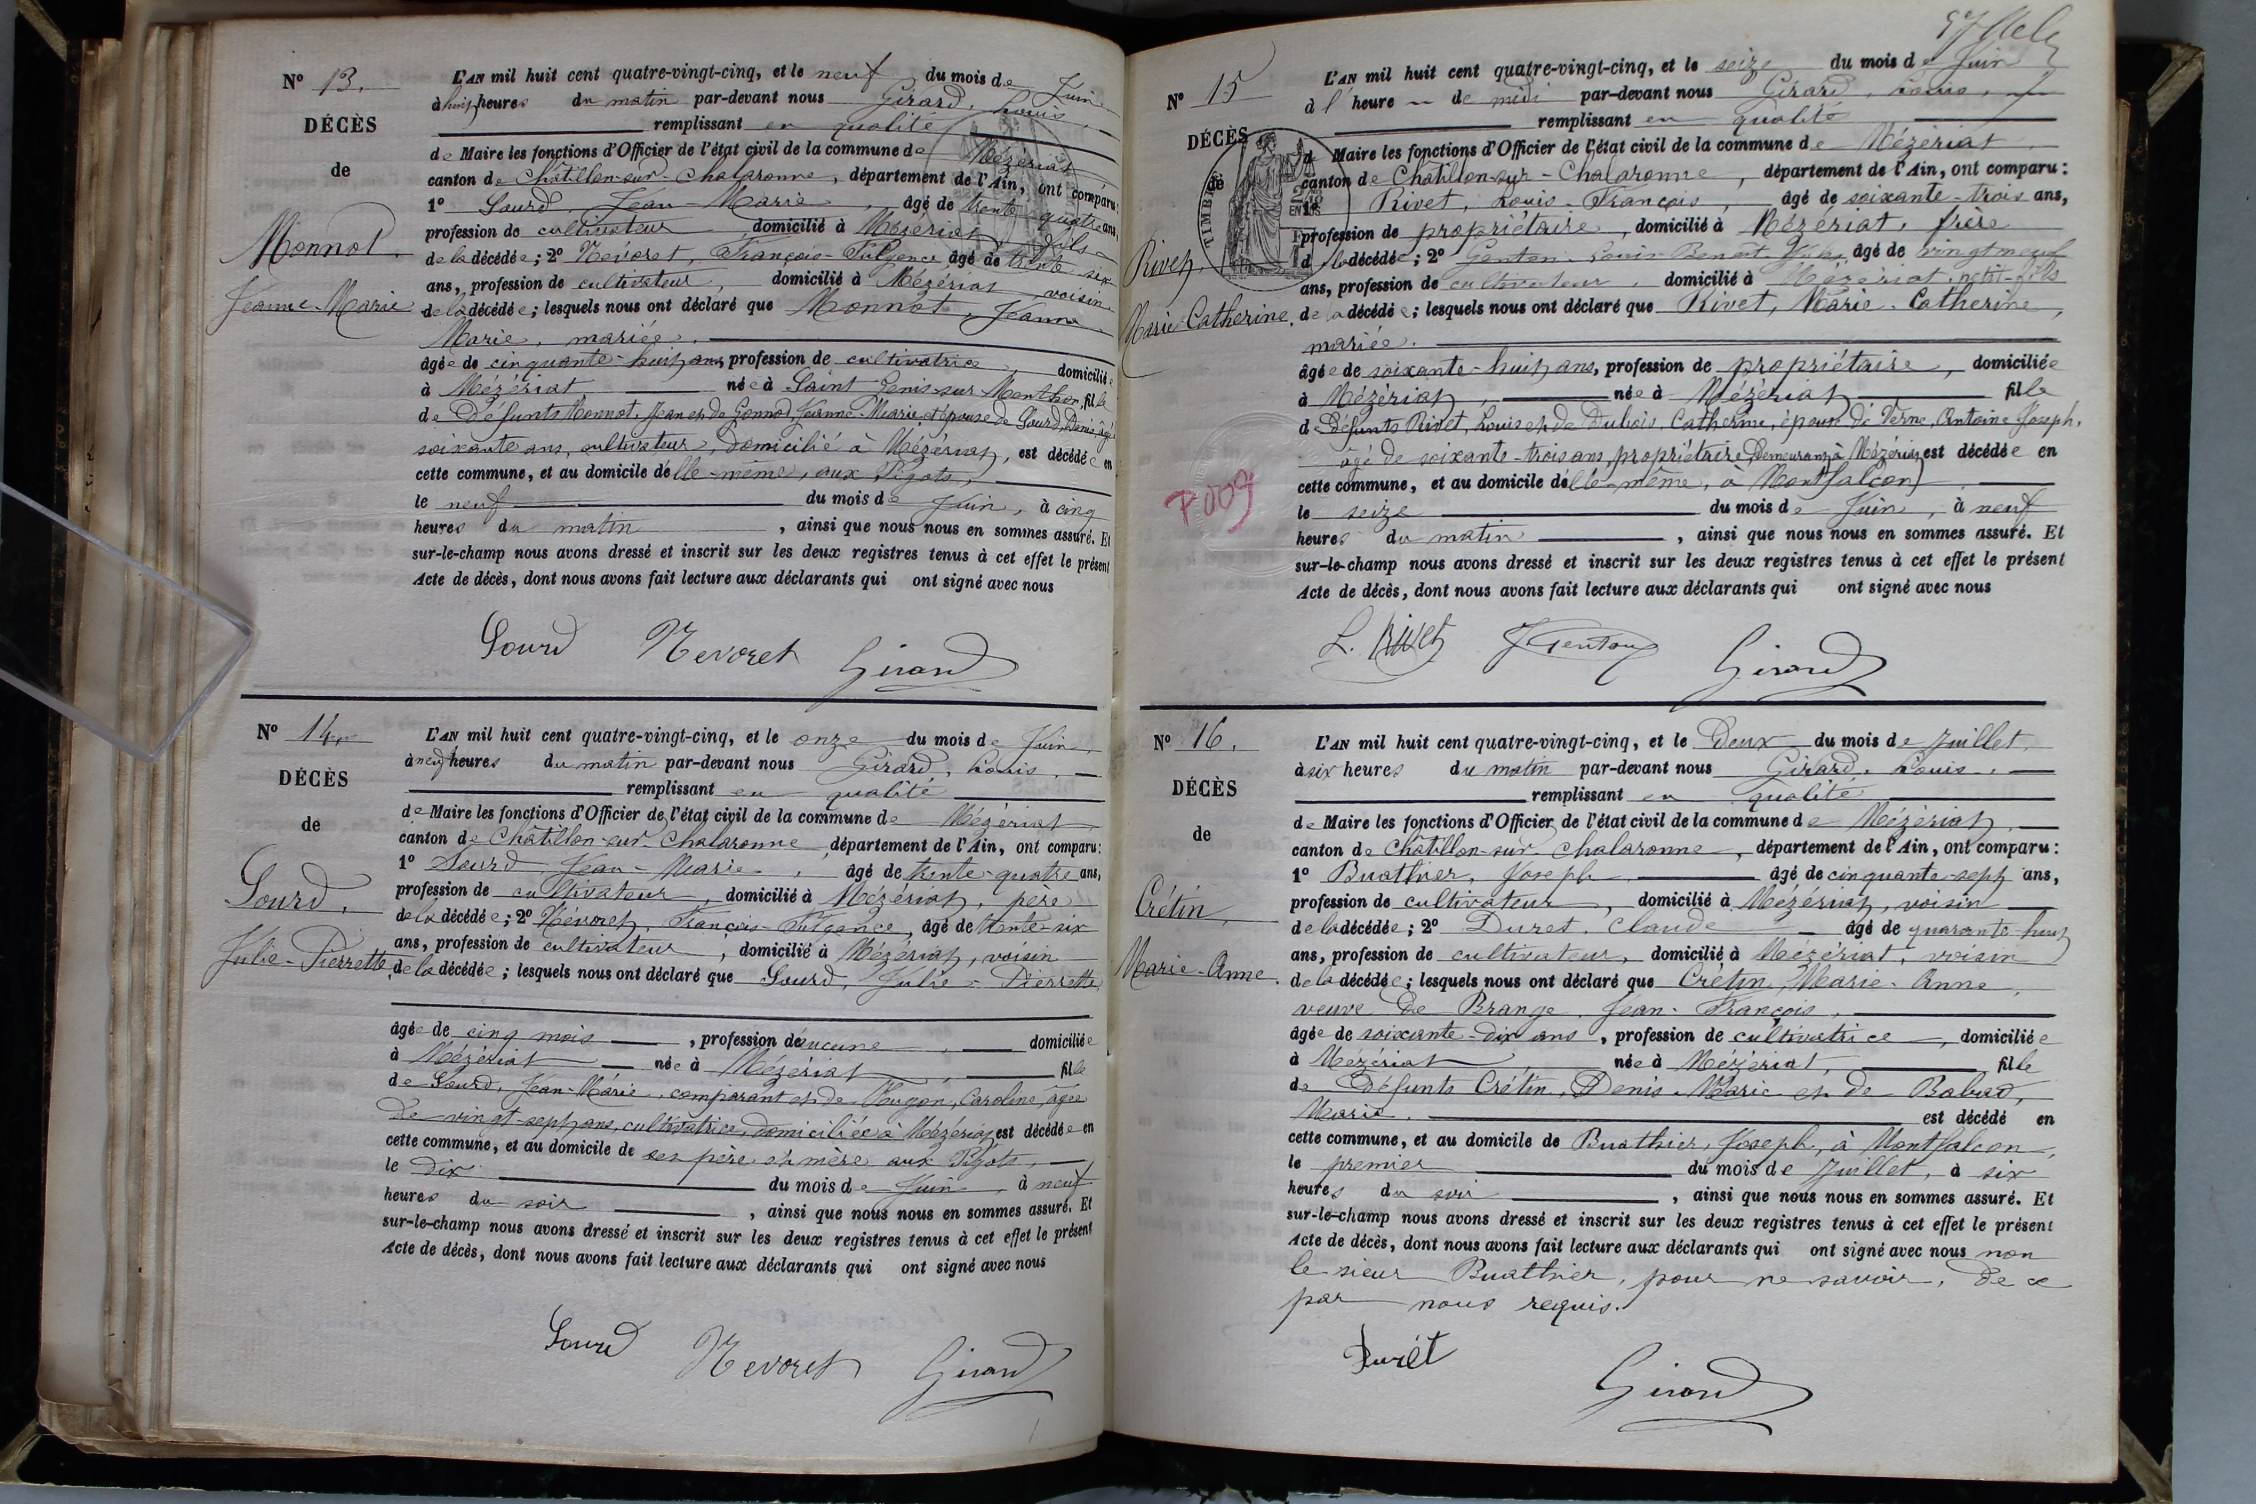 Nº 13.
DÉCÈS
de
Monnot.
Jeanne-Marie
L'AN mil huit cent quatre-vingt-cinq, et le neuf du mois de Juin
à huit heures du matin par-devant nous Girard, Louis,
remplissant en qualité
de Maire les fonctions d'Officier de l'état civil de la commune de Mézériat
canton de Châtillon-sur-Chalaronne, département de l'Ain, ont comparu:
1º Sourd, Jean-Marie, âgé de trente-quatre ans,
profession de cultivateur, domicilié à Mézériat, fils
de la décédée; 2º Nevoret, François-Fulgence âgé de trente-six
ans, profession de cultivateur, domicilié à Mézériat, voisin
de la décédée; lesquels nous ont déclaré que Monnot, Jeanne
Marie, mariée.
âgée de cinquante-huit ans, profession de cultivatrice, domiciliée
à Mézériat née à Saint Genis-sur Menthon, fille
de défunts Monnot, Jean et de Gonnod, Jeanne-Marie, et épouse de Sourd, Denis, âgé
soixante ans, cultivateur, domicilié à Mézériat, est décédée en
cette commune, et au domicile d'elle-même, aux Pigots,
le neuf du mois de Juin, à cinq
heures du matin, ainsi que nous nous en sommes assuré. Et
sur-le-champ nous avons dressé et inscrit sur les deux registres tenus à cet effet le présent
Acte de décès, dont nous avons fait lecture aux déclarants qui ont signé avec nous
Sourd Nevoret Girard
Nº 14.
DÉCÈS
de
Sourd,
Julie-Pierrette
L'AN mil huit cent quatre-vingt-cinq, et le onze du mois de Juin
à neuf heures du matin par-devant nous Girard, Louis,
remplissant en qualité
de Maire les fonctions d'Officier de l'état civil de la commune de Mézériat
canton de Châtillon-sur-Chalaronne département de l'Ain, ont comparu:
1º Sourd Jean-Marie, âgé de trente-quatre ans,
profession de cultivateur, domicilié à Mézériat, père
de la décédée; 2º Nevoret, François-Fulgence, âgé de trente-six
ans, profession de cultivateur, domicilié à Mézériat, voisin
de la décédée; lesquels nous ont déclaré que Sourd, Julie-Pierrette
âgée de cinq mois, profession d'aucune, domiciliée
à Mézériat née à Mézériat, fille
de Sourd, Jean-Marie, comparant et de Hugon, Caroline, âgée
de vingt-sept ans, cultivatrice, domiciliée à Mézériat, est décédée en
cette commune, et au domicile de ses père et mère aux Pigots,
le dix du mois de Juin, à neuf
heures du soir, ainsi que nous nous en sommes assuré. Et
sur-le-champ nous avons dressé et inscrit sur les deux registres tenus à cet effet le présent
Acte de décès, dont nous avons fait lecture aux déclarants qui ont signé avec nous
Sourd Nevoret Girard
Nº 15
DÉCÈS
de
Rivet,
Marie Catherine.
L'AN mil huit cent quatre-vingt-cinq, et le seize du mois de Juin
à l'heure de midi par-devant nous Girard, Louis,
remplissant en qualité
de Maire les fonctions d'Officier de l'état civil de la commune de Mézériat
canton de Châtillon-sur-Chalaronne, département de l'Ain, ont comparu:
1º Rivet, Louis-François, âgé de soixante-trois ans,
profession de propriétaire, domicilié à Mézériat, frère
de la décédée; 2º Genton, Louis Benoit âgé de vingt neuf
ans, profession de cultivateur, domicilié à Mézériat, petit-fils
de la décédée; lesquels nous ont déclaré que Rivet, Marie-Catherine,
mariée.
âgée de soixante-huit ans, profession de propriétaire, domiciliée
à Mézériat, née à Mézériat fille
de défunts Rivet, Louis et de Dubois, Catherine, épouse de Verne, Antoine Joseph,
âgé de soixante-trois ans, propriétaire, demeurant à Mézériat, est décédée en
cette commune, et au domicile d'elle-même, à Montfalcon,
le seize du mois de Juin, à neuf
heures du matin, ainsi que nous nous en sommes assuré. Et
sur-le-champ nous avons dressé et inscrit sur les deux registres tenus à cet effet le présent
Acte de décès, dont nous avons fait lecture aux déclarants qui ont signé avec nous
L. Rivet J Genton Girard
Nº 16.
DÉCÈS
de
Crétin,
Marie-Anne.
L'AN mil huit cent quatre-vingt-cinq, et le Deux du mois de Juillet,
à six heures du matin par-devant nous Girard, Louis,
remplissant en qualité
de Maire les fonctions d'Officier de l'état civil de la commune de Mézériat,
canton de Châtillon-sur Chalaronne, département de l'Ain, ont comparu:
1º Buathier, Joseph âgé de cinquante-sept ans,
profession de cultivateur, domicilié à Mézériat, voisin
de la décédée; 2º Duret, Claude âgé de quarante-huit
ans, profession de cultivateur, domicilié à Mézériat, voisin
de la décédée; lesquels nous ont déclaré que Crétin, Marie-Anne,
veuve de Brange, Jean-François,
âgée de soixante-dix ans, profession de cultivatrice, domiciliée
à Mézériat, née à Mézériat, fille
de Défunts Crétin, Denis-Marie et de Babad,
Marie. est décédé en
cette commune, et au domicile de Buathier, Joseph, à Montfalcon,
le premier du mois de Juillet, à six
heures du soir, ainsi que nous nous en sommes assuré. Et
sur-le-champ nous avons dressé et inscrit sur les deux registres tenus à cet effet le présent
Acte de décès, dont nous avons fait lecture aux déclarants qui ont signé avec nous non
le sieur Buathier, pour ne savoir, de ce
par nous requis.
Duret Girard